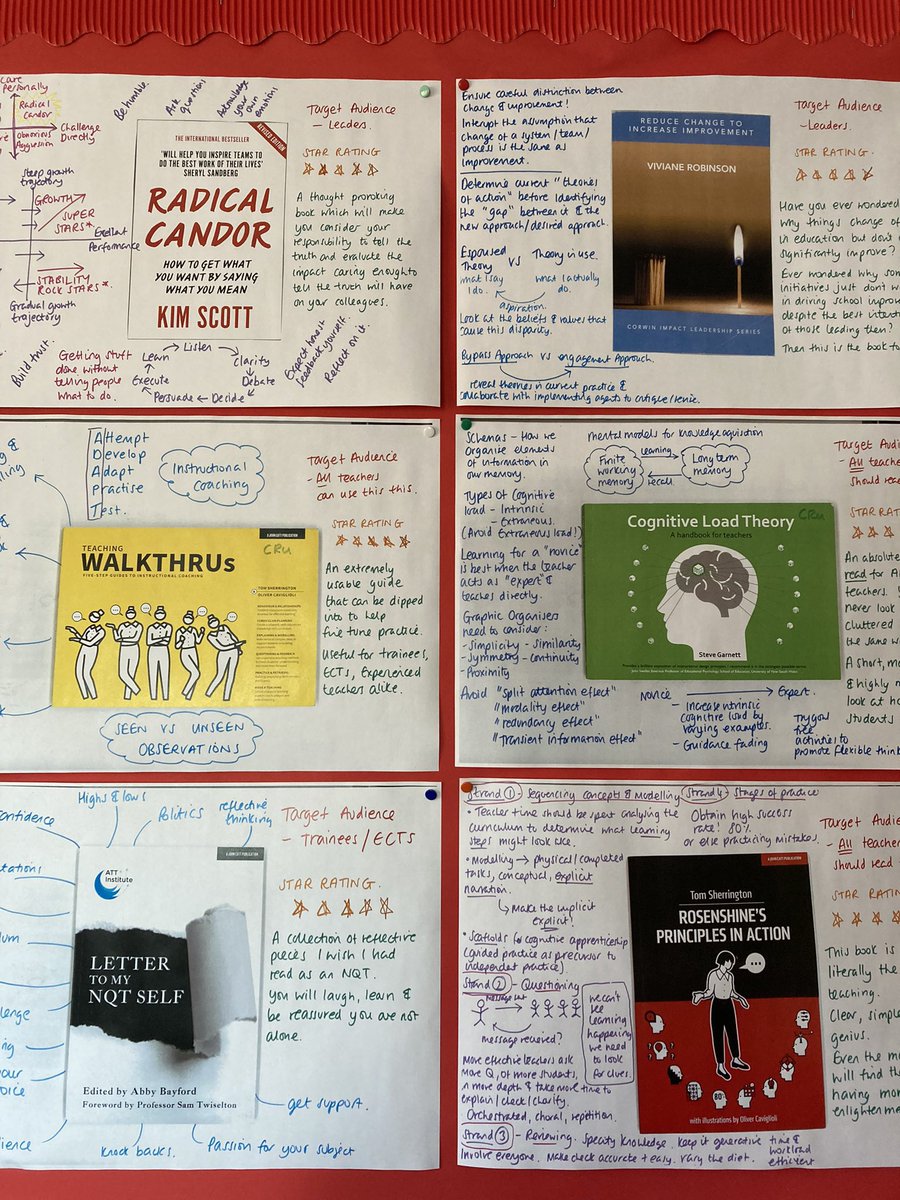 care
Personally
Radical
Candor
Obnoxious
Aggression
Challenge
Directly
Steep growth
trajectory
GROWTH
SUPER
STARS*
Excellent
Performance
STABILITY
ROCK STARS*
Gradual growth
trajectory
Be humble.
Ask
questions
Acknowledge
your own
emotions
REVISED EDITION
THE INTERNATIONAL BESTSELLER
'WILL HELP YOU INSPIRE TEAMS TO
DO THE BEST WORK OF THEIR LIVES'
SHERYL SANDBERG
RADICAL
CANDOR
HOW TO GET WHAT
YOU WANT BY SAYING
WHAT YOU MEAN
KIM SCOTT
Target Audience
- Leaders.
STAR RATING
A thought provoking
book which will make
you consider your
responsibility to tell the
truth and evaluate the
impact caring enough to
tell the truth will have
on your colleagues.
Build trust.
Getting stuff
done without
telling people
what to do.
Listen
Clarity
Debate
Decide
Persuade
Execute
Learn
Expect harsh
feedback yourself.
Reflect on it.
Ensure careful distinction between
change & improvement!
Interupt the assumption that
change of a system/team/
process is the same as
improvement.
Determine current "theories
of action" before identifying
the "gap" between it & the
new approach/desired approach.
Espoused
Theory
vs
Theory in use.
what I say
I do.
what I actually
do.
aspiration.
Look at the beliefs & values that
cause this disparity.
Bypass Approach vs engagement Approach.
reveal theories in current practice &
collaborate with implementing agents to critique/revise.
REDUCE CHANGE TO
INCREASE IMPROVEMENT
VIVIANE ROBINSON
CORWIN IMPACT LEADERSHIP SERIES
Target Audience
- Leaders.
STAR RATING
Have you ever wondered
why things change of
in education but don't
significantly improve?
Ever wondered why som
initiatives just don't w
in driving school improv
despite the best intent
of those leading them?
Then this is the book fo
Attempt
Develop
Adapt
Practise
Test.
Instructional
Coaching
A JOHN CATT PUBLICATION
TEACHING
WALKTHRUs
FIVE-STEP GUIDES TO INSTRUCTIONAL COACHING
CRU
TOM SHERRINGTON
OLIVER CAVIGLIOLI
Target Audience
- All teachers
can use this this.
STAR RATING
An extremely
usable guide
that can be dipped
into to help
fine tune practice.
Useful for trainees,
ECTs, Experienced
teachers alike.
SEEN VS UNSEEN
OBSERVATIONS
Schemas - How we
Organise elements
of information in
our memory.
Types of Cognitive
load - Intrinsic
- Extraneous.
(Avoid Extraneous load!)
Learning for a "novice"
is best when the teacher
acts as "expert" &
teaches directly.
Graphic Organisers
need to consider:
- Simplicity - Similarity
- Symmetry - continuity
- Proximity
Avoid "Split attention effect"
"modality effect"
"redundancy effect"
"Transient information effect"
mental models for knowledge aquisition
Finite
working
memory
Learning
recall
Long term
memory
Cognitive Load Theory
A handbook for teachers
CRU
Steve Garnett
Novice
Expert.
- Increase intrinsic
cognitive load by
varying examples.
- Guidance fading
Try goal
free
activities to
promote flexible think
Target Au
- All teache
should rea
STAR RA
An absolute
read for Al
teachers.
never look
cluttered
the same w
A short, m
& highly
look at ho
students
Highs & lows
Politics
reflective
thinking
ATT
Institute
A JOHN CATT PUBLICATION
LETTER
TO MY
NQT SELF
Edited by Abby Bayford
Foreword by Professor Sam Twiselton
Target Audience
- Trainees/ECTS
STAR RATING.
A collection of reflective
pieces I wish I had
read as an NQT.
you will laugh, learn &
be reassured you are not
alone.
get support.
Passion for your subject
Knock backs.
Strand 1 - Sequencing concepts & Modelling
Strand 4 - Stages of practice
• Teacher time should be spent analysing the
curriculum to determine what learning
steps might look like.
Obtain high success
rate! 80%
or else practicing mistakes.
• Modelling → physical/completed
tasks, conceptual, explicit
narration.
Make the implicit
explicit!
• Scaffolds for cognitive apprenticeship
(guided practice as precursor to
independent practice)
Strand 2 - Questioning
message sent
message received?
we can't
see
learning
happening
we need
to look
for clues.
More effective leaders ask
more Q, of more students,
in more depth & take more time to
explain/check/clarify.
Orchestrated, choral, repetition.
Strand 3 - Reviewing. Specify knowledge. Keep it generative
time &
workload
efficient
Involve everyone. Make check accurate + easy. Vary the diet.
A JOHN CATT PUBLICATION
Tom Sherrington
ROSENSHINE'S
PRINCIPLES IN ACTION
80%
with illustrations by Oliver Caviglioli
Target Audie
- All teacher
should read
STAR RATIN
This book is
literally the
teaching.
Clear, simple
genius.
Even the mo
will find th
having mor
enlighten